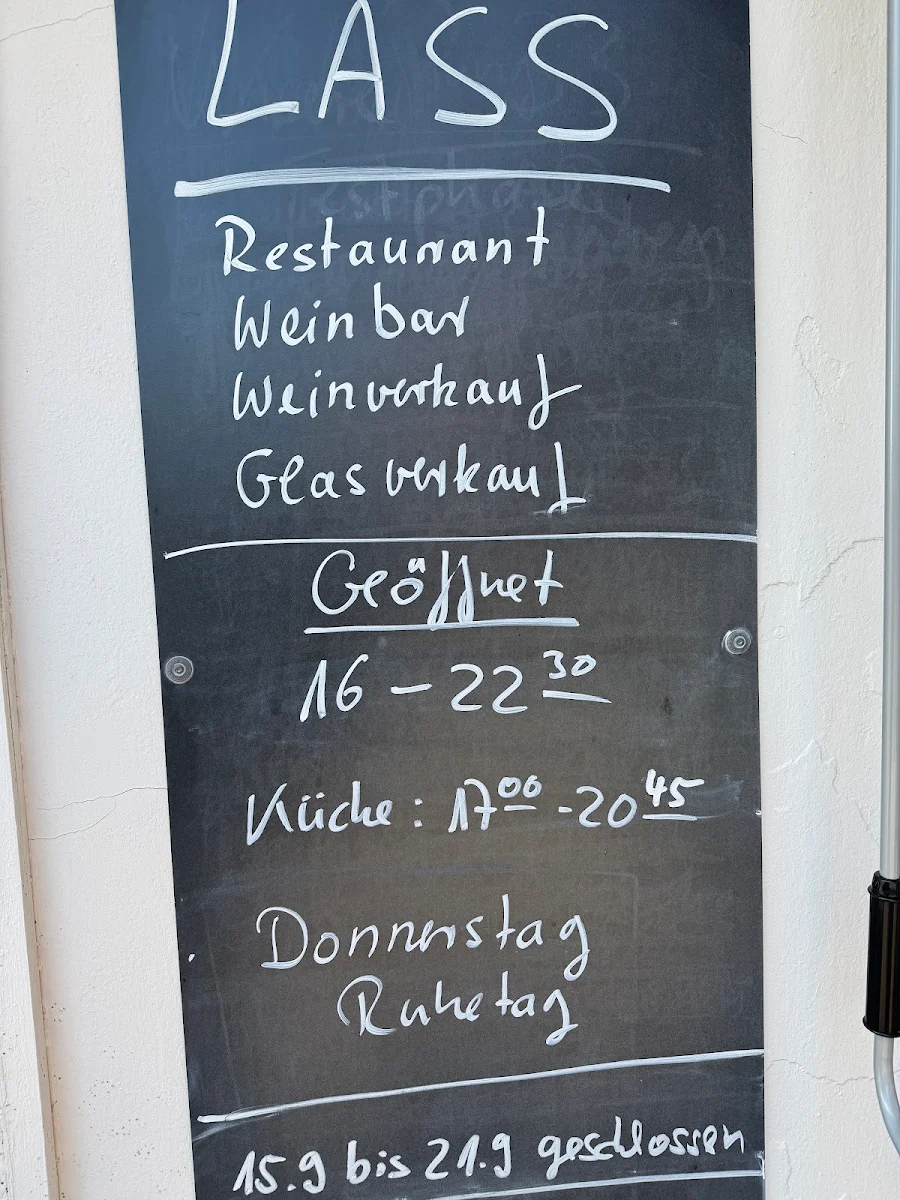 LASS
Restaurant
Weinbar
Weinverkauf
Glasverkauf
Geöffnet
16 – 22 30
Küche: 17 00 - 20 45
Donnerstag
Ruhetag
15.9 bis 21.9 geschlossen